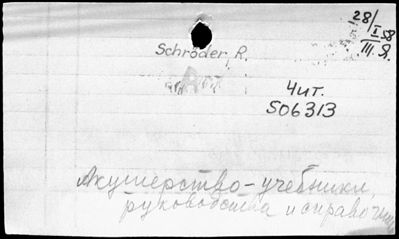 28/I 58
III. Я.
Schröder, R.
Чит.
506313
Акушерство-учебники,
руководства и справочники